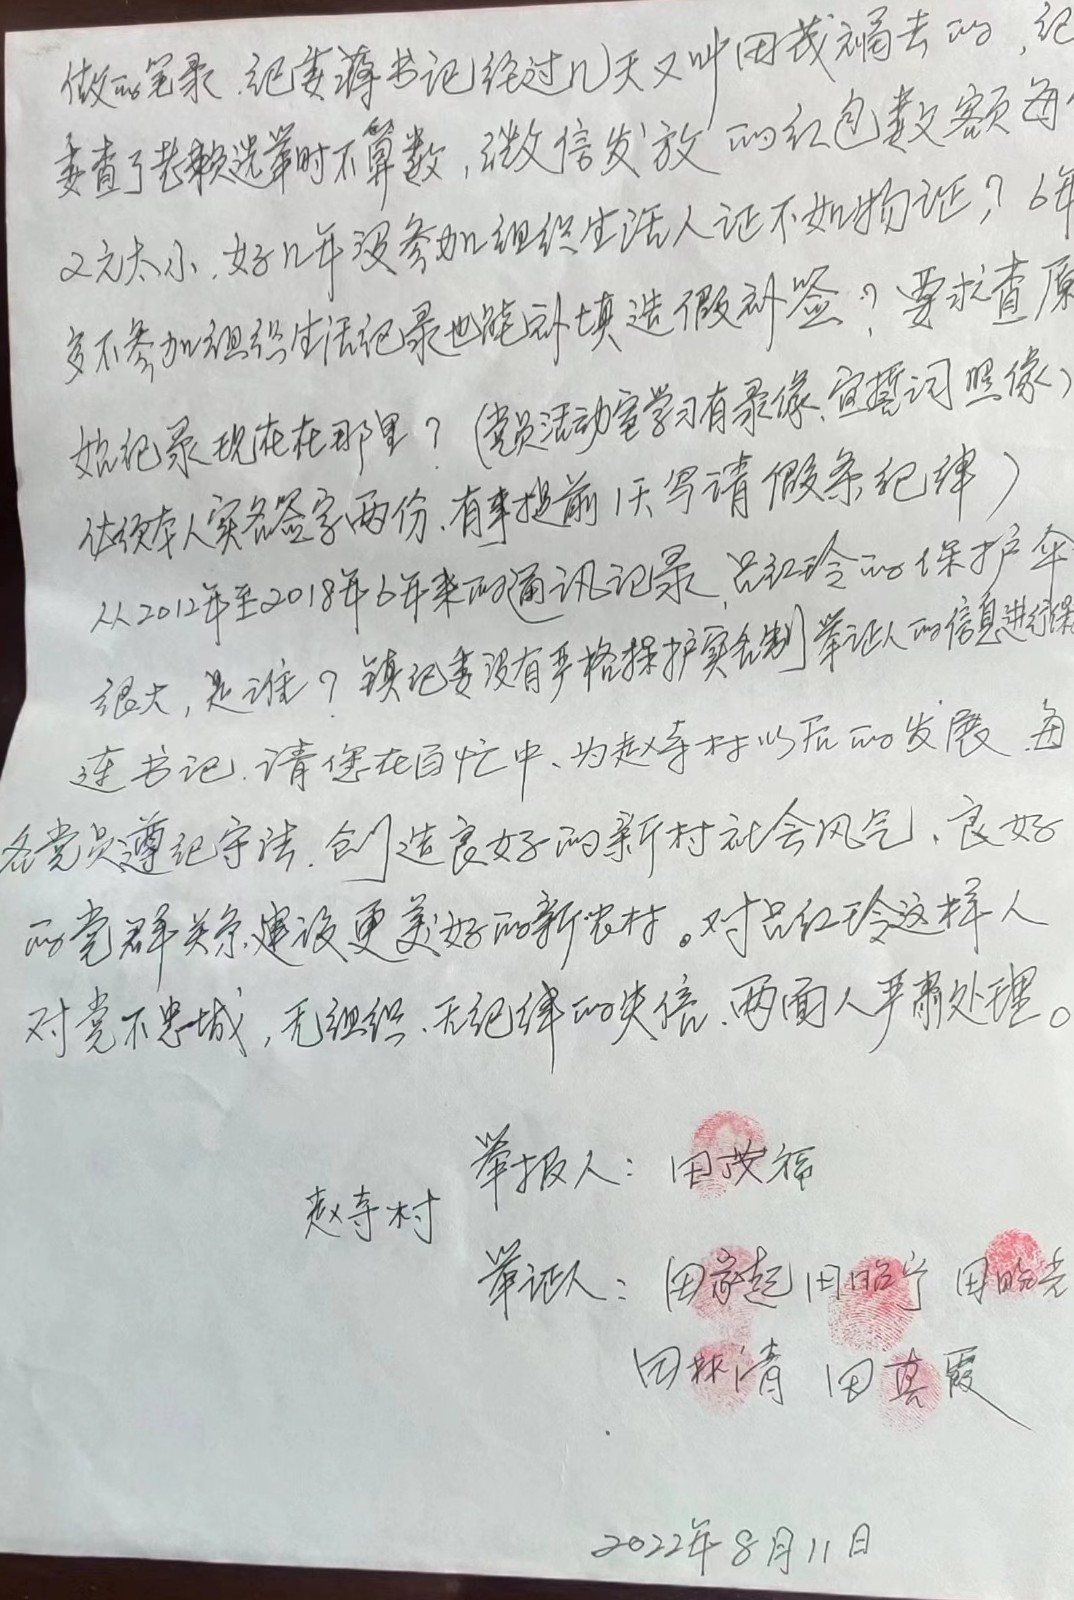 做的笔录.纪委薄书记经过几天又叫田茂福去的,纪
委查了老赖选举时不算数,微信发放的红包数额每
2元太小.好几年没参加组织生活人证不如物证?6年
多不参加组织生活纪录也能补填造假补签?要求查原
始纪录现在在那里?(党员活动室学习有录像、宣誓词照像)
必须本人实名签字两份、有事提前1天写请假条纪律)
从2012年至2018年6年来的通讯记录,吕红玲的保护伞
很大,是谁?镇纪委没有严格保护实名制举证人的信息进行保
连书记.请您在百忙中、为赵寺村以后的发展 每
名党员遵纪守法.创造良好的新村社会风气、良好
的党群关系建设更美好的新农村。对吕红玲这样人
对党不忠城,无组织、无纪律的失信、两面人严肃处理。
举报人:田茂福
赵寺村
举证人:田家起 田昭宁 田晓光
田林清 田真霞
2022年8月11日